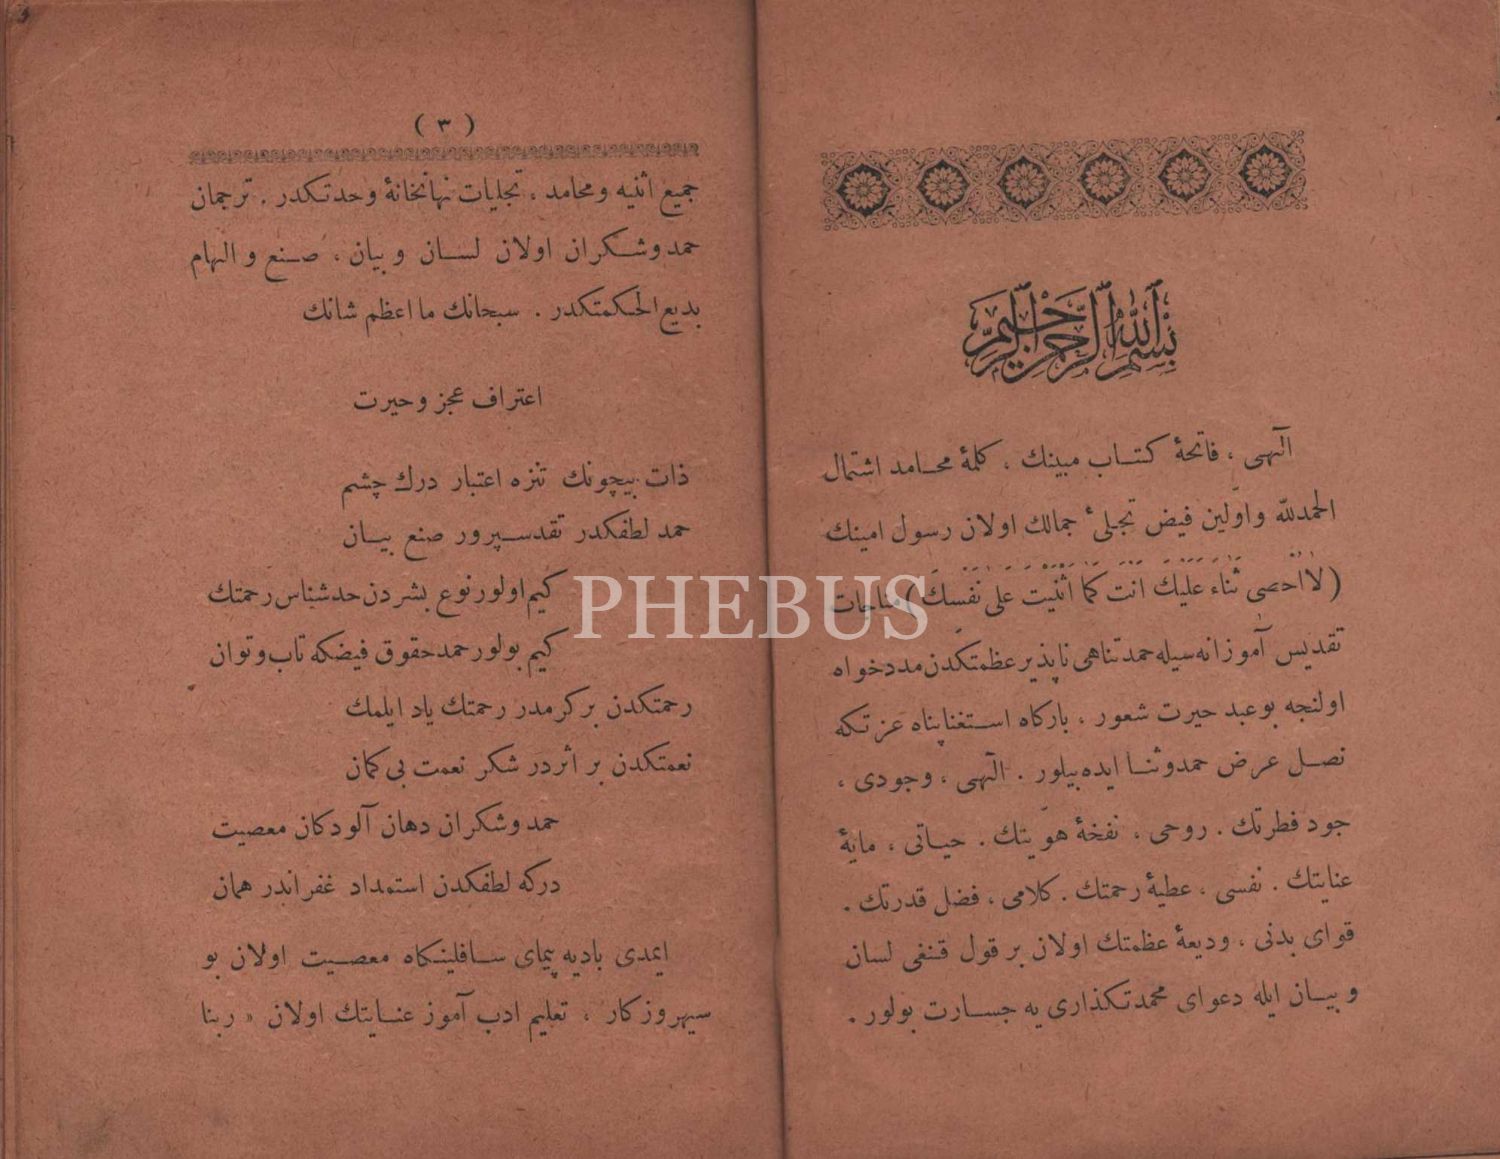 بسم الله الرحمن الرحيم
الٓهی ، فاتحهٔ كتاب مبينك ، كلمهٔ محامد اشتمال
الحمدلله و اوّلين فيض تجلیٔ جمالك اولان رسول امينك
( لَا اُحْصِی ثَنَاءَ عَلَيْكَ اَنْتَ كَمَا اَثْنَيْتَ عَلَى نَفْسِكَ ) مناجات
تقديس آموزانه‌سيله حمد تناهی ناپذير عظمتكدن مددخواه
اولنجه بو عبد حيرت شعور ، باركاه استغناپناه عزتكه
نصل عرض حمدوثنا ايده‌بيلور . الٓهی ، وجودی ،
جود فطرتك . روحی ، نفخهٔ هوّيتك . حياتی ، مايهٔ
عنايتك . نفسی ، عطيهٔ رحمتك . كلامی ، فضل قدرتك .
قوای بدنی ، وديعهٔ عظمتك اولان بر قول قنغی لسان
و بيان ايله دعوای محمدتكذاری يه جسارت بولور .
( ٣ )
جميع اثنيه و محامد ، تجليات نهانخانهٔ وحدتكدر . ترجمان
حمد و شكران اولان لسان و بيان ، صنع و الهام
بديع الحكمتكدر . سبحانك ما اعظم شانك
اعتراف عجز و حيرت
ذات بيچونك تنزه اعتبار درك چشم
حمد لطفكدر تقدسپرور صنع بيان
كيم اولور نوع بشردن حدشناس رحمتك
كيم بولور حمد حقوق فيضكه تاب و توان
رحمتكدن بر كرمدر رحمتك ياد ايلمك
نعمتكدن بر اثردر شكر نعمت بی كمان
حمد و شكران دهان آلودكان معصيت
دركه لطفكدن استمداد غفراندر همان
ايمدی باديه پيمای سافلينكاه معصيت اولان بو
سيهروزكار ، تعليم ادب آموز عنايتك اولان « ربنا
PHEBUS